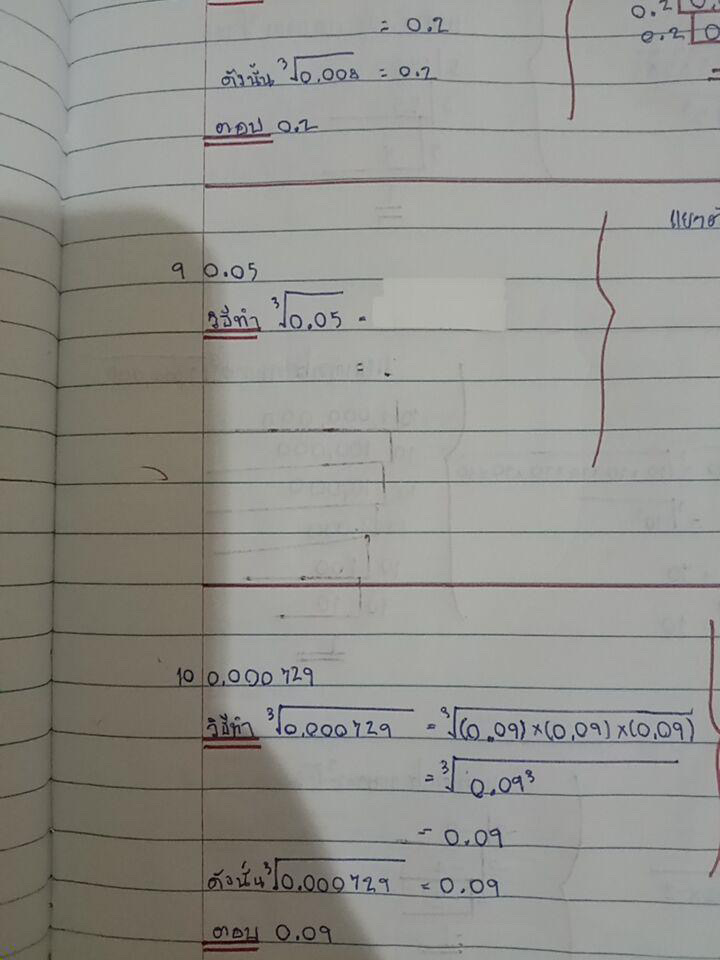 = 0.2
0.2
0.2
ดังนั้น ³√0.008 = 0.2
ตอบ 0.2
9 0.05
วิธีทำ ³√0.05 =
=
10 0.000729
วิธีทำ ³√0.000729 = ³√(0.09)×(0.09)×(0.09)
= ³√0.09³
= 0.09
ดังนั้น ³√0.000729 = 0.09
ตอบ 0.09